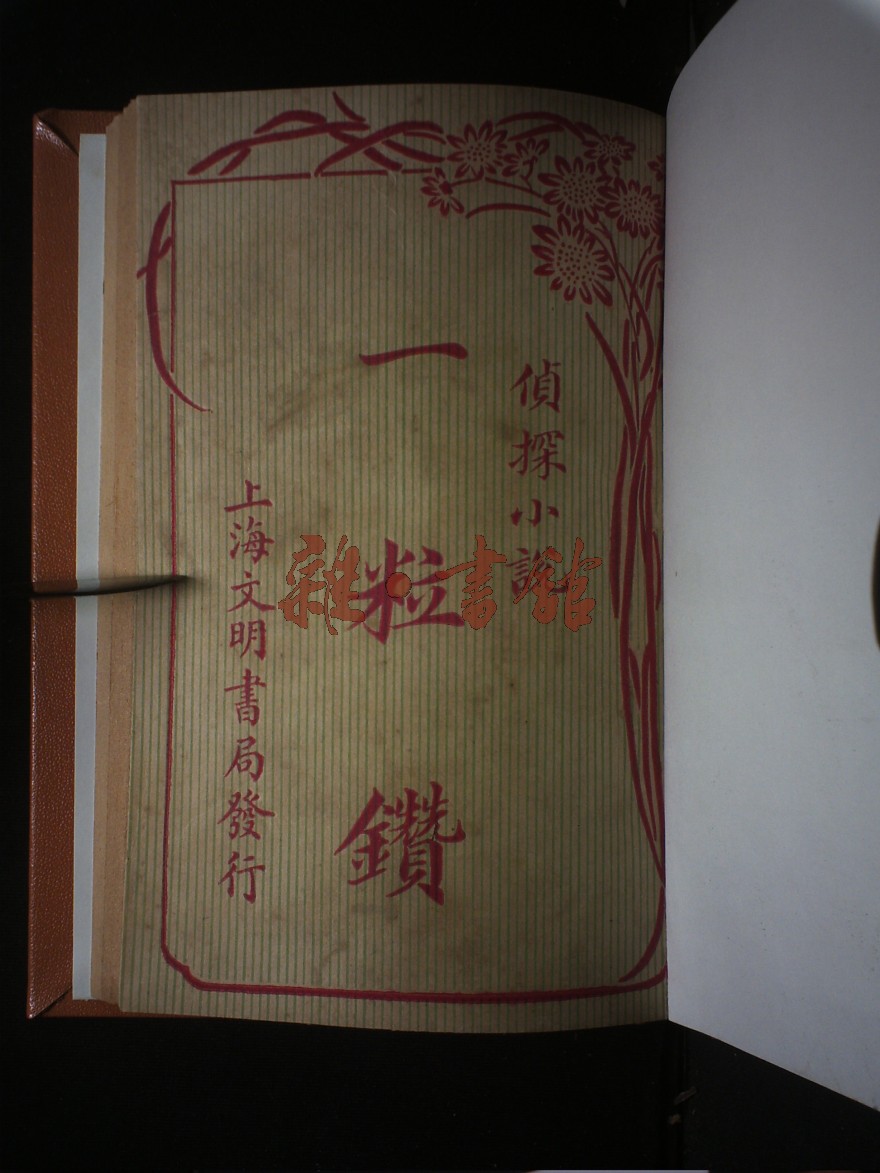 偵探小說
一粒鑽
上海文明書局發行
雜書館